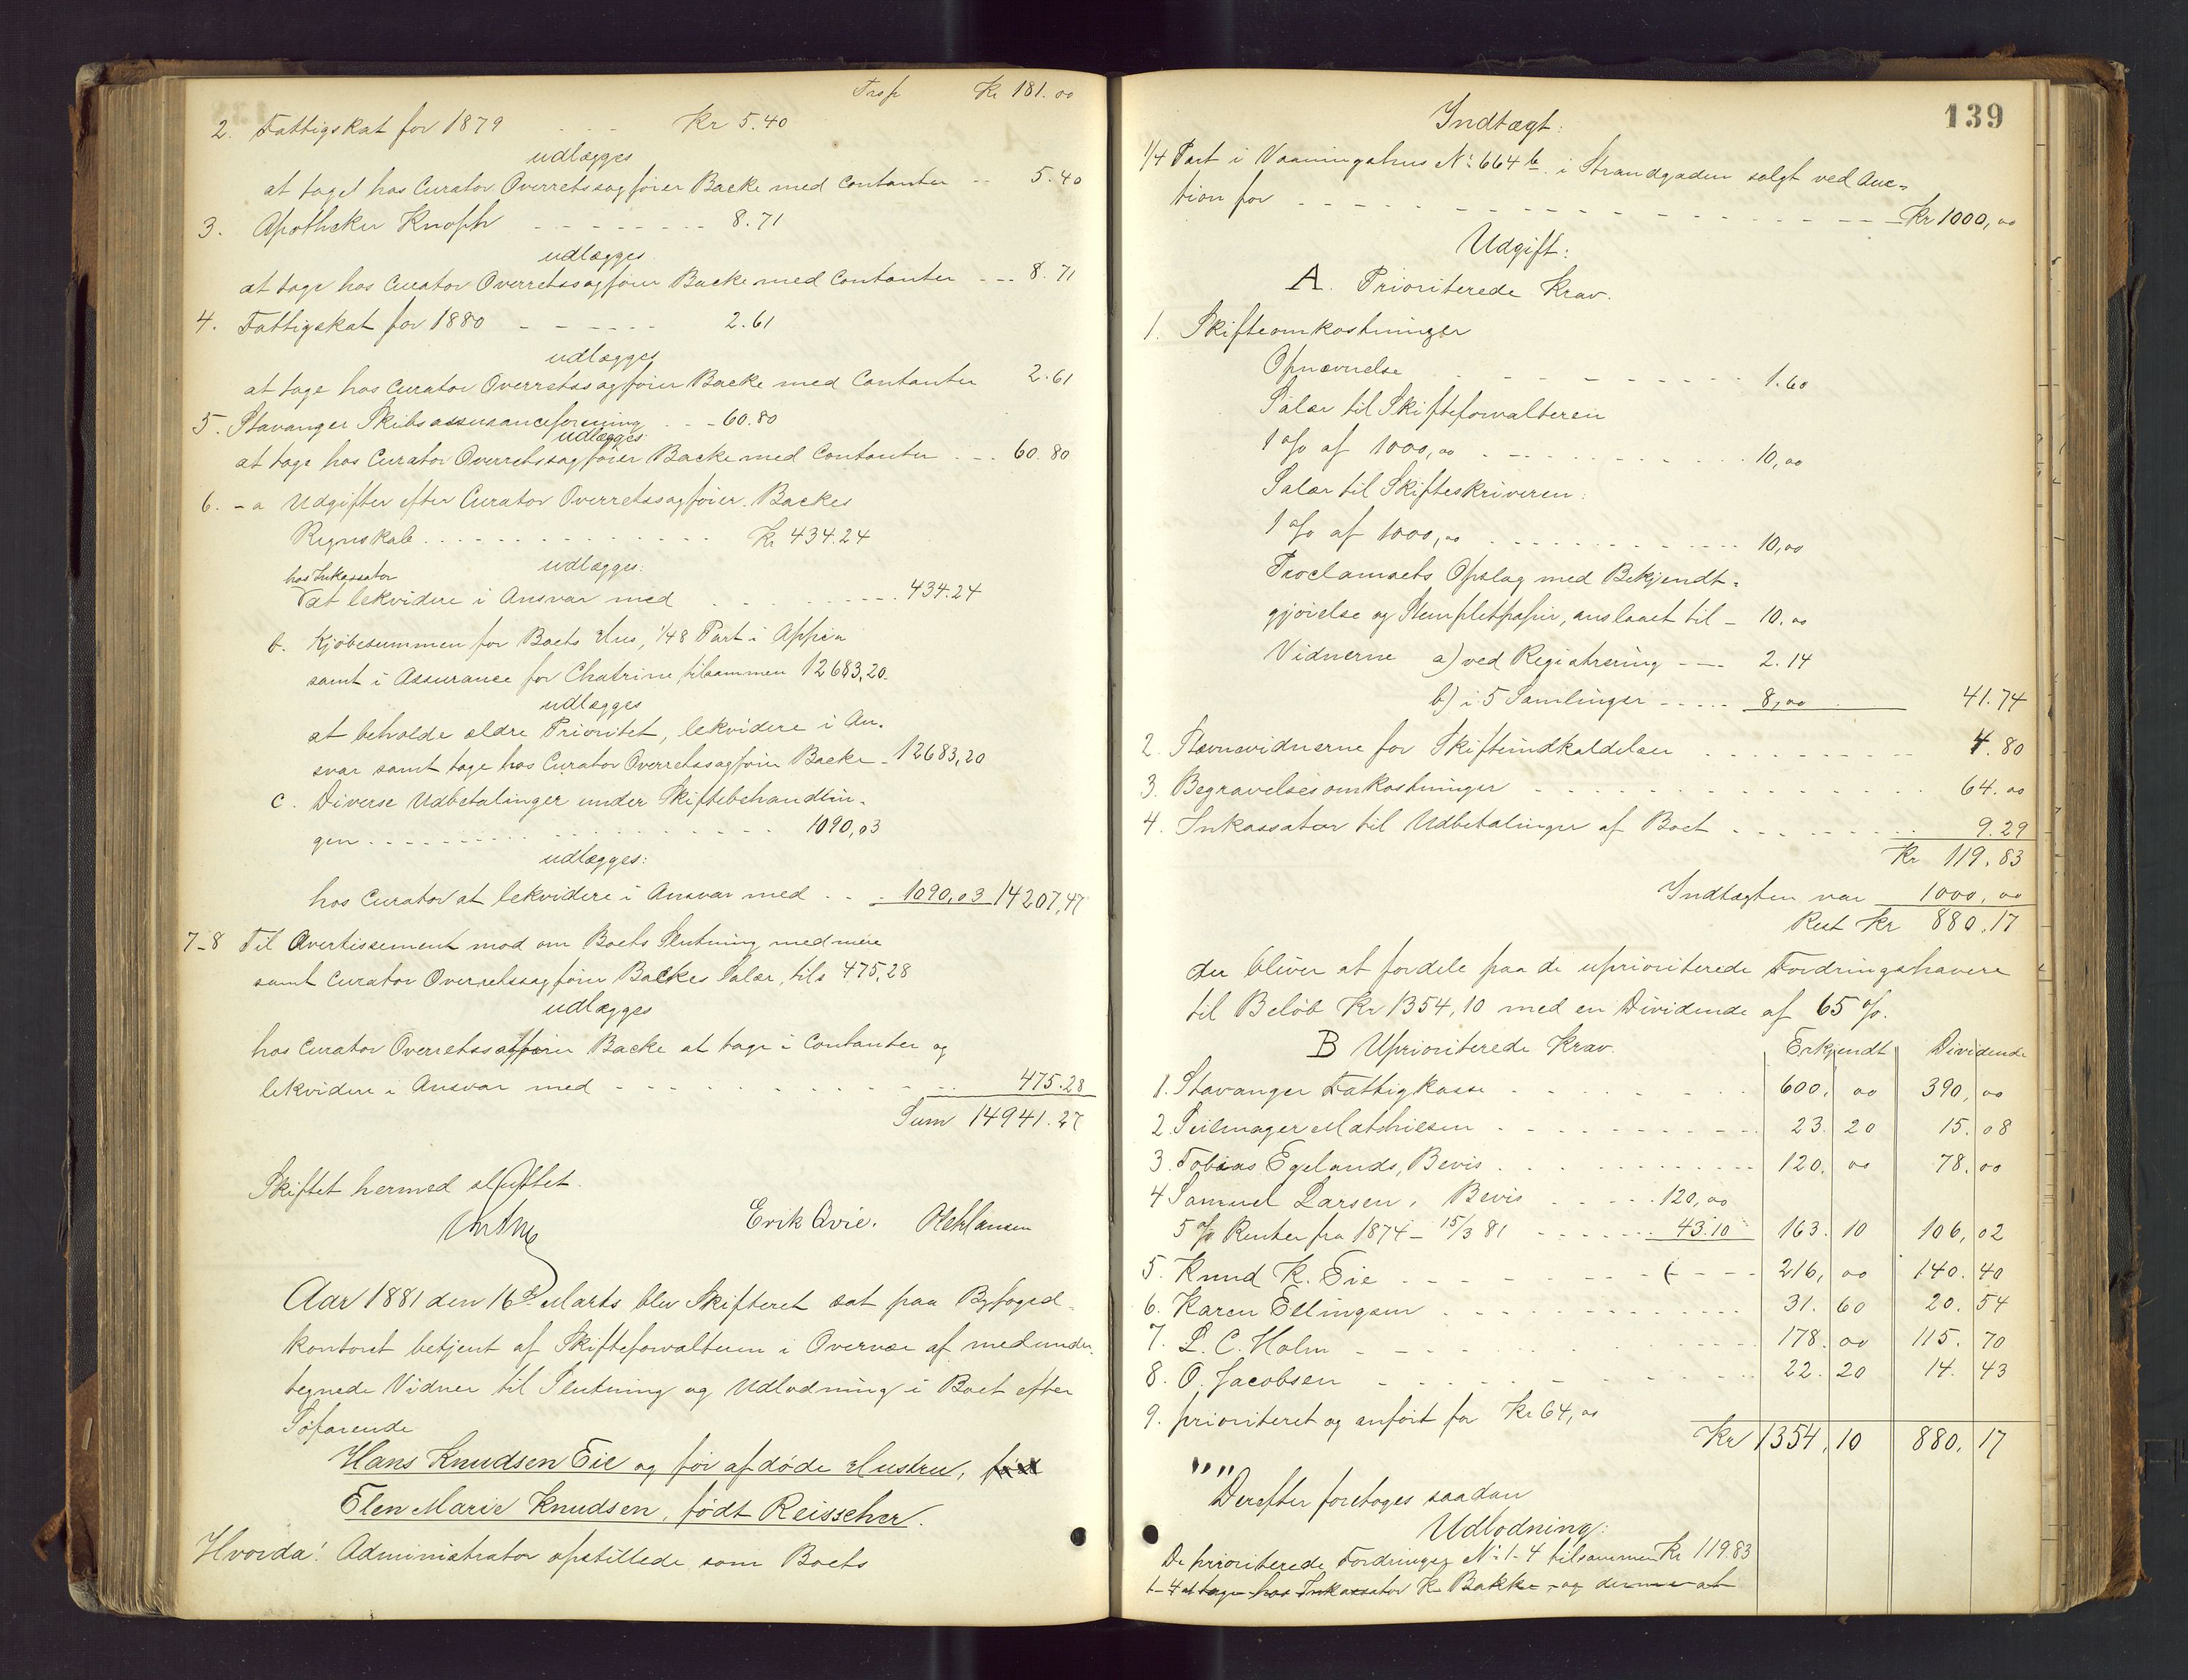 Trsp Kr 181.00
2. Fattigskat for 1879 Kr 5.40
udlægges
at taget hos Curator Overretssagfører Backe med Contanter 5.40
3. Apotheker Knoph 8.71
udlægges
at tage hos Curator Overretssagfører Backe med Contanter 8.71
4. Fattigskat for 1880 2.61
udlægges
at tage hos Curator Overretssagfører Backe med Contanter 2.61
5. Stavanger Skibsassuranceforening 60.80
udlægges:
at tage hos Curator Overretssagfører Backe med Contanter 60.80
6. - a Udgifter efter Curator Overretssagfører Backes
Regnskab Kr 434.24
udlægges:
hos Inkassator
at lekvidere i Ansvar med 434.24
b. Kjøbesummen for Boets Hus, 1/48 Part i Appia
samt i Assurance for Chatrine, tilsammen 12683,20.
udlægges
at beholde ældre Prioritet, lekvidere i An-
svar samt tage hos Curator Overretssagfører Backe - 12683,20
c. Diverse Udbetalinger under Skiftebehandlin-
gen 1090,03
udlægges:
hos Curator at lekvidere i Ansvar med 1090,03 14207,47
7-8 Til Avertissement mod om Boets Slutning med mere
samt Curator Overretssagfører Backes Salær, tils 475,28
udlægges
hos Curator Overretssagfører Backe at tage i Contanter og
lekvidere i Ansvar med 475.28
Sum 14941.27
Skiftet hermed sluttet.
Erik Qvie. Ole Hansen
Aar 1881 den 16de Marts blev Skifteret sat paa Byfoged-
kontoret betjent af Skifteforvalteren i Overvær af medunder-
tegnede Vidner til Slutning og Udlodning i Boet efter
Søfarende
Hans Knudsen Eie og før afdøde Hustru, født
Elen Marie Knudsen, født Reisscher.
Hvorda! Administrator opstillede som Boets
139
Indtægt:
1/4 Part i Vaaningshus No 664 b. i Strandgaden solgt ved Auc-
tion for Kr 1000,00
Udgift:
A. Prioriterede Krav.
1. Skifteomkostninger
Opnævnelse 1.60
Salær til Skifteforvalteren
1 % af 1000,00 10,00
Salær til Skifteskriveren:
1 % af 1000,00 10,00
Proclamaets Opslag med Bekjendt-
gjørelse og Stempletpapir, anslaaet til - 10.00
Vidnerne a) ved Registrering 2.14
b) i 5 Samlinger 8,00 41.74
2. Stævnevidnerne for Skifteindkaldelsen 4.80
3. Begravelsesomkostninger 64.00
4. Inkassator til Udbetalinger af Boet 9.29
Kr 119.83
Indtægten var 1000,00
Rest Kr 880.17
der bliver at fordele paa de uprioriterede Fordringshavere
til Beløb Kr 1354,10 med en Dividende af 65 %.
B Uprioriterede Krav. Erkjendt Dividende
1. Stavanger Fattigkasse 600,00 390,00
2. Seilmager Mathiesen 23.20 15.08
3. Tobias Egelands, Bevis 120.00 78.00
4 Samuel Larsen, Bevis 120,00
5 % Renter fra 1874 - 15/3 81 43.10 163.10 106,02
5. Knud K. Eie 216,00 140.40
6. Karen Ellingsen 31.60 20.54
7. L. C. Holm 178.00 115.70
8. O. Jacobsen 22.20 14.43
9. prioriteret og anført for Kr 64,00
Kr 1354,10 880,17
Derefter foretoges saadan
Udlodning:
De prioriterede Fordringer No 1-4 tilsammen Kr 119.83
1-4 at tage hos Inkassator K. Bakke, og